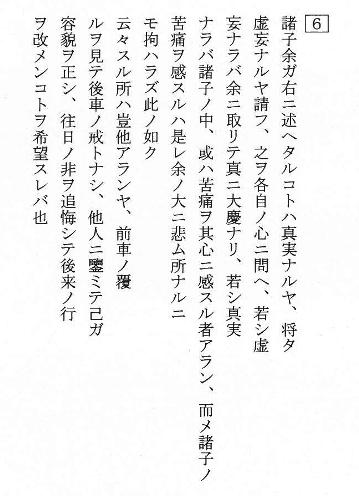 6
諸子余ガ右ニ述ヘタルコトハ真実ナルヤ、将タ
虚妄ナルヤ請フ、之ヲ各自ノ心ニ問ヘ、若シ虚
妄ナラバ余ニ取リテ真ニ大慶ナリ、若シ真実
ナラバ諸子ノ中、或ハ苦痛ヲ其心ニ感スル者アラン、而メ諸子ノ
苦痛ヲ感スルハ是レ余ノ大ニ悲ム所ナルニ
モ拘ハラズ此ノ如ク
云々スル所ハ豈他アランヤ、前車ノ覆
ルヲ見テ後車ノ戒トナシ、他人ニ鑒ミテ己ガ
容貌ヲ正シ、往日ノ非ヲ追悔シテ後来ノ行
ヲ改メンコトヲ希望スレバ也